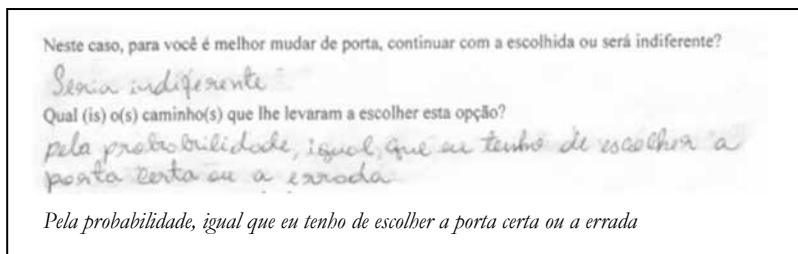 Neste caso, para você é melhor mudar de porta, continuar com a escolhida ou será indiferente?
Seria indiferente
Qual (is) o(s) caminho(s) que lhe levaram a escolher esta opção?
pela probabilidade, igual, que eu tenho de escolher a
porta certa ou a errada
Pela probabilidade, igual que eu tenho de escolher a porta certa ou a errada